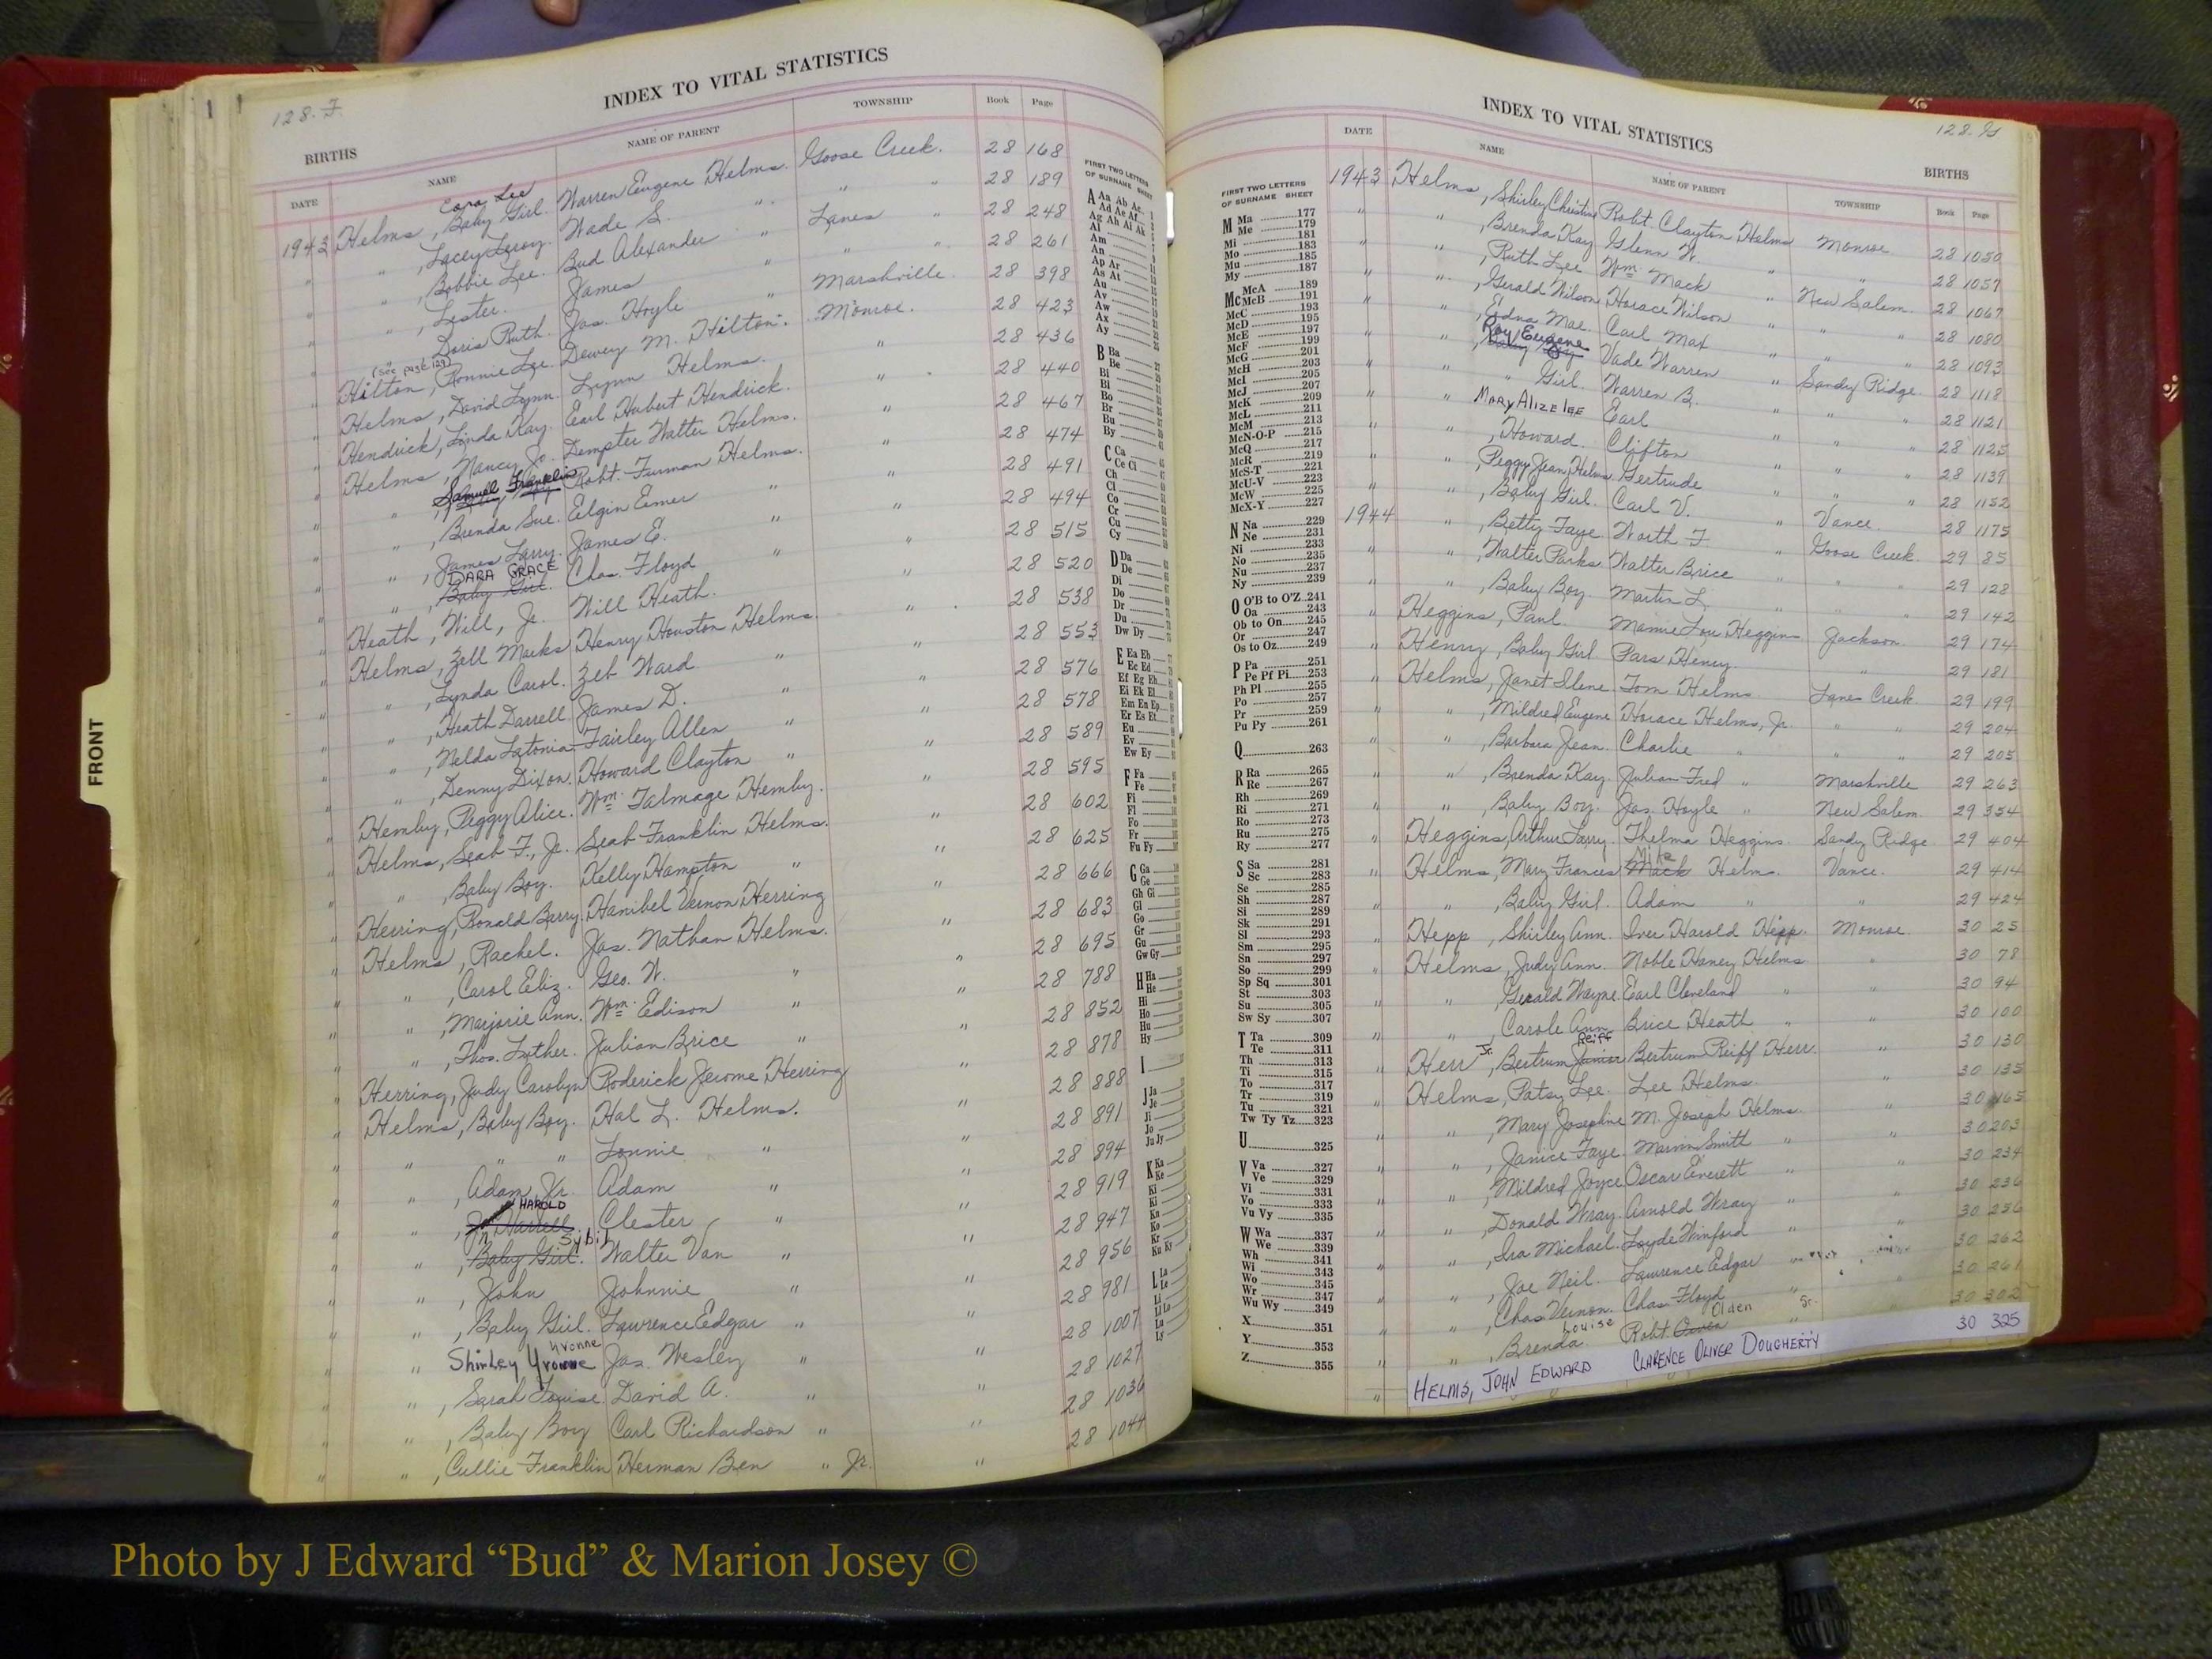 128-F.
INDEX TO VITAL STATISTICS
BIRTHS
DATE NAME NAME OF PARENT TOWNSHIP Book Page
1943 Helms, Baby Girl. Cora Lee Warren Eugene Helms. Goose Creek. 28 168
" " , Lacey Leroy. Wade S. " " " 28 189
" " , Bobbie Lee. Bud Alexander " Lanes " 28 248
" " , Lester. James " " " 28 261
" " , Doris Ruth. Jas. Hoyle " Marshville. 28 398
(See page 129)
" Hilton, Ronnie Lee. Dewey M. Hilton. Monroe. 28 423
" Helms, David Lynn. Lynn Helms. " 28 436
" Hendrick, Linda Kay. Earl Hubert Hendrick. " 28 440
" Helms, Nancy Jo. Dempster Walter Helms. " 28 467
" " , Samuel Franklin Robt. Furman Helms. " 28 474
" " , Brenda Sue. Elgin Esmer " " 28 491
" " , James Larry. James E. " " 28 494
" " , Baby Girl. DARA GRACE Chas. Floyd " " 28 515
" Heath, Will, Jr. Will Heath. " 28 520
" Helms, Zoll Marks Henry Houston Helms. " 28 538
" " , Lynda Carol. Zeb Ward " " 28 553
" " , Heath Darrell James D. " " 28 576
" " , Nelda Latonia Fairley Allen " " 28 578
" " , Denny Dixon. Howard Clayton " " 28 589
" Hemby, Peggy Alice. Wm. Talmage Hemby. " 28 595
" Helms, Seab F., Jr. Seab Franklin Helms. " 28 602
" " , Baby Boy. Kelly Hampton " " 28 625
" Herring, Ronald Barry. Hanibel Vernon Herring " 28 666
" Helms, Rachel. Jas. Nathan Helms. " 28 683
" " , Carol Eliz. Geo. W. " " 28 695
" " , Marjorie Ann. Wm. Edison " " 28 788
" " , Thos. Luther. Julian Brice " " 28 852
" Herring, Judy Carolyn Roderick Jerome Herring " 28 878
" Helms, Baby Boy. Hal L. Helms. " 28 888
" " " " Lonnie " " 28 891
" " , Adam, Jr. Adam " " 28 894
" " , HAROLD Clester " " 28 919
" " , Baby Girl. Sybil Walter Van " " 28 947
" " , John Johnnie " " 28 956
" " , Baby Girl. Lawrence Edgar " " 28 981
" " Shirley Yvonne Yvonne Jas. Wesley " " 28 1007
" " , Sarah Louise. David A. " " 28 1027
" " , Baby Boy Carl Richardson " " 28 1036
" " , Cullie Franklin Herman Ben " Jr. " 28 1044
FIRST TWO LETTERS
OF SURNAME SHEET
A Aa Ab Ac
Ad Ae Af
Ag Ah Ai Ak
Al
Am
An
Ap Ar
As At
Au
Av
Aw
Ax
Ay
B Ba
Be
Bi
Bl
Bo
Br
Bu
By
C Ca
Ce Ci
Ch
Cl
Co
Cr
Cu
Cy
D Da
De
Di
Do
Dr
Du
Dw Dy
E Ea Eb
Ec Ed
Ef Eg Eh
Ei Ek El
Em En Ep
Er Es Et
Eu
Ev
Ew Ey
F Fa
Fe
Fi
Fl
Fo
Fr
Fu Fy
G Ga
Ge
Gh Gi
Gl
Go
Gr
Gu
Gw Gy
H Ha
He
Hi
Ho
Hu
Hy
I
J Ja
Je
Ji
Jo
Ju Jy
K Ka
Ke
Ki
Kl
Kn
Ko
Kr
Ku Ky
L La
Le
Li
Ll Lo
Lu
Ly
128. G
INDEX TO VITAL STATISTICS
BIRTHS
DATE NAME NAME OF PARENT TOWNSHIP Book Page
FIRST TWO LETTERS
OF SURNAME SHEET
M Ma 177
Me 179
Mi 181
Mo 183
Mu 185
My 187
Mc McA 189
McB 191
McC 193
McD 195
McE 197
McF 199
McG 201
McH 203
McI 205
McJ 207
McK 209
McL 211
McM 213
McN-O-P 215
McQ 217
McR 219
McS-T 221
McU-V 223
McW 225
McX-Y 227
N Na 229
Ne 231
Ni 233
No 235
Nu 237
Ny 239
O O'B to O'Z 241
Oa 243
Ob to On 245
Or 247
Os to Oz 249
P Pa 251
Pe Pf Pi 253
Ph Pl 255
Po 257
Pr 259
Pu Py 261
Q 263
R Ra 265
Re 267
Rh 269
Ri 271
Ro 273
Ru 275
Ry 277
S Sa 281
Sc 283
Se 285
Sh 287
Si 289
Sk 291
Sl 293
Sm 295
Sn 297
So 299
Sp Sq 301
St 303
Su 305
Sw Sy 307
T Ta 309
Te 311
Th 313
Ti 315
To 317
Tr 319
Tu 321
Tw Ty Tz 323
U 325
V Va 327
Ve 329
Vi 331
Vo 333
Vu Vy 335
W Wa 337
We 339
Wh 341
Wi 343
Wo 345
Wr 347
Wu Wy 349
X 351
Y 353
Z 355
1943 Helms, Shirley Christine Robt. Clayton Helms Monroe 28 1050
" " , Brenda Kay Glenn W. " " 28 1057
" " , Ruth Lee Wm. Mack " New Salem. 28 1067
" " , Gerald Wilson Horace Wilson " " " 28 1080
" " , Edna Mae. Carl Max " " " 28 1093
" " , Roy Eugene Vade Warren " Sandy Ridge. 28 1118
" " " Girl. Warren B. " " " 28 1121
" " MARY ALIZE LEE Earl " " " 28 1125
" " , Howard. Clifton " " " 28 1139
" " , Peggy Jean Helms Gertrude " " " 28 1152
" " , Baby Girl. Carl V. " Vance. 28 1175
1944 " , Betty Faye Worth F. " Goose Creek. 29 85
" " , Walter Parks. Walter Brice " " " 29 128
" " , Baby Boy. Martin L. " " " 29 142
" Heggins, Paul. Mamie Lou Heggins Jackson. 29 174
" Henry, Baby Girl. Pars Henry. " 29 181
" Helms, Janet Ilene Tom Helms Lanes Creek. 29 199
" " , Mildred Eugene Horace Helms, Jr. " " 29 204
" " , Barbara Jean. Charlie " " " 29 205
" " , Brenda Kay. Julian Fred " Marshville 29 263
" " , Baby Boy. Jas. Hoyle " New Salem. 29 354
" Heggins, Arthur Larry. Thelma Heggins. Sandy Ridge 29 404
" Helms, Mary Frances Mack Mike Helms. Vance. 29 414
" " , Baby Girl. Adam " " 29 424
" Hepp, Shirley Ann. Iver Harold Hepp. Monroe. 30 25
" Helms, Judy Ann. Noble Haney Helms " 30 78
" " , Gerald Wayne. Earl Cleveland " " 30 94
" " , Carole Ann Brice Heath " " 30 100
" Herr Jr., Bertrum Junior Reiff Bertrum Reiff Herr. " 30 130
" Helms, Patsy Lee. Lee Helms. " 30 135
" " , Mary Josephine M. Joseph Helms. " 30 165
" " , Janice Faye. Marvin Smith " " 30 203
" " , Mildred Joyce Oscar Everett " " 30 234
" " , Donald Wray. Arnold Wray " " 30 236
" " , Ira Michael. Loyde Winford " " 30 256
" " , Joe Neil. Lawrence Edgar " " 30 262
" " , Chas. Vernon. Chas. Floyd " " 30 261
" " , Brenda. Louise Robt. Olden " Sr. 30 302
" HELMS, JOHN EDWARD CLARENCE OLIVER DOUGHERTY 30 325
FRONT
Photo by J Edward “Bud” & Marion Josey ©